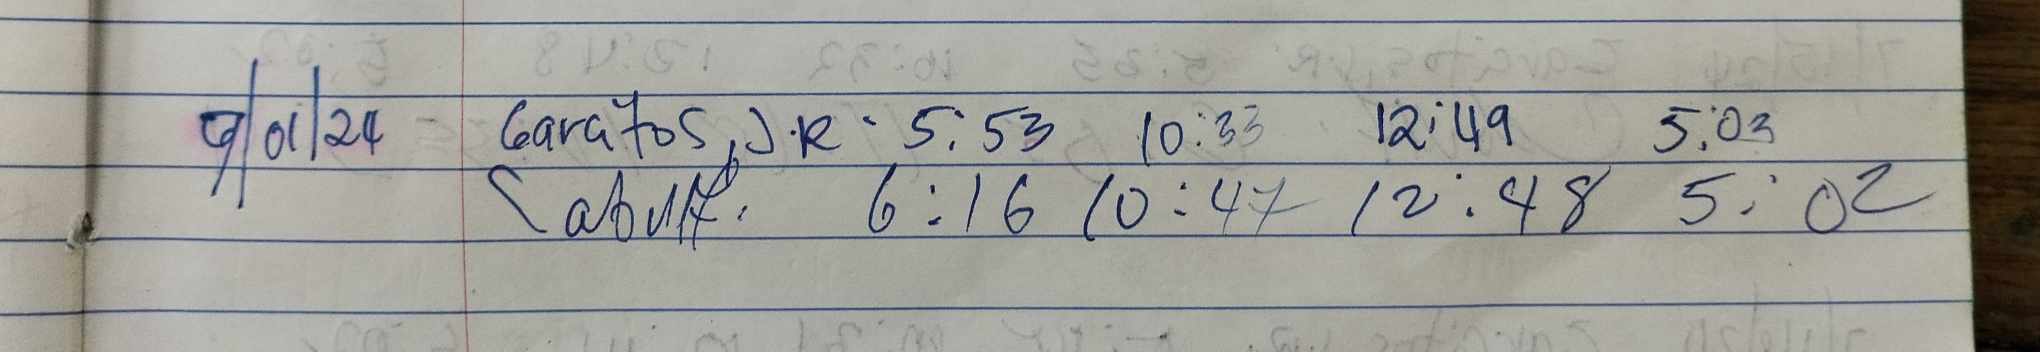 9/01/24 Caratos, J.R. 5:53 10:33 12:49 5:03
6:16 10:47 12:48 5:02